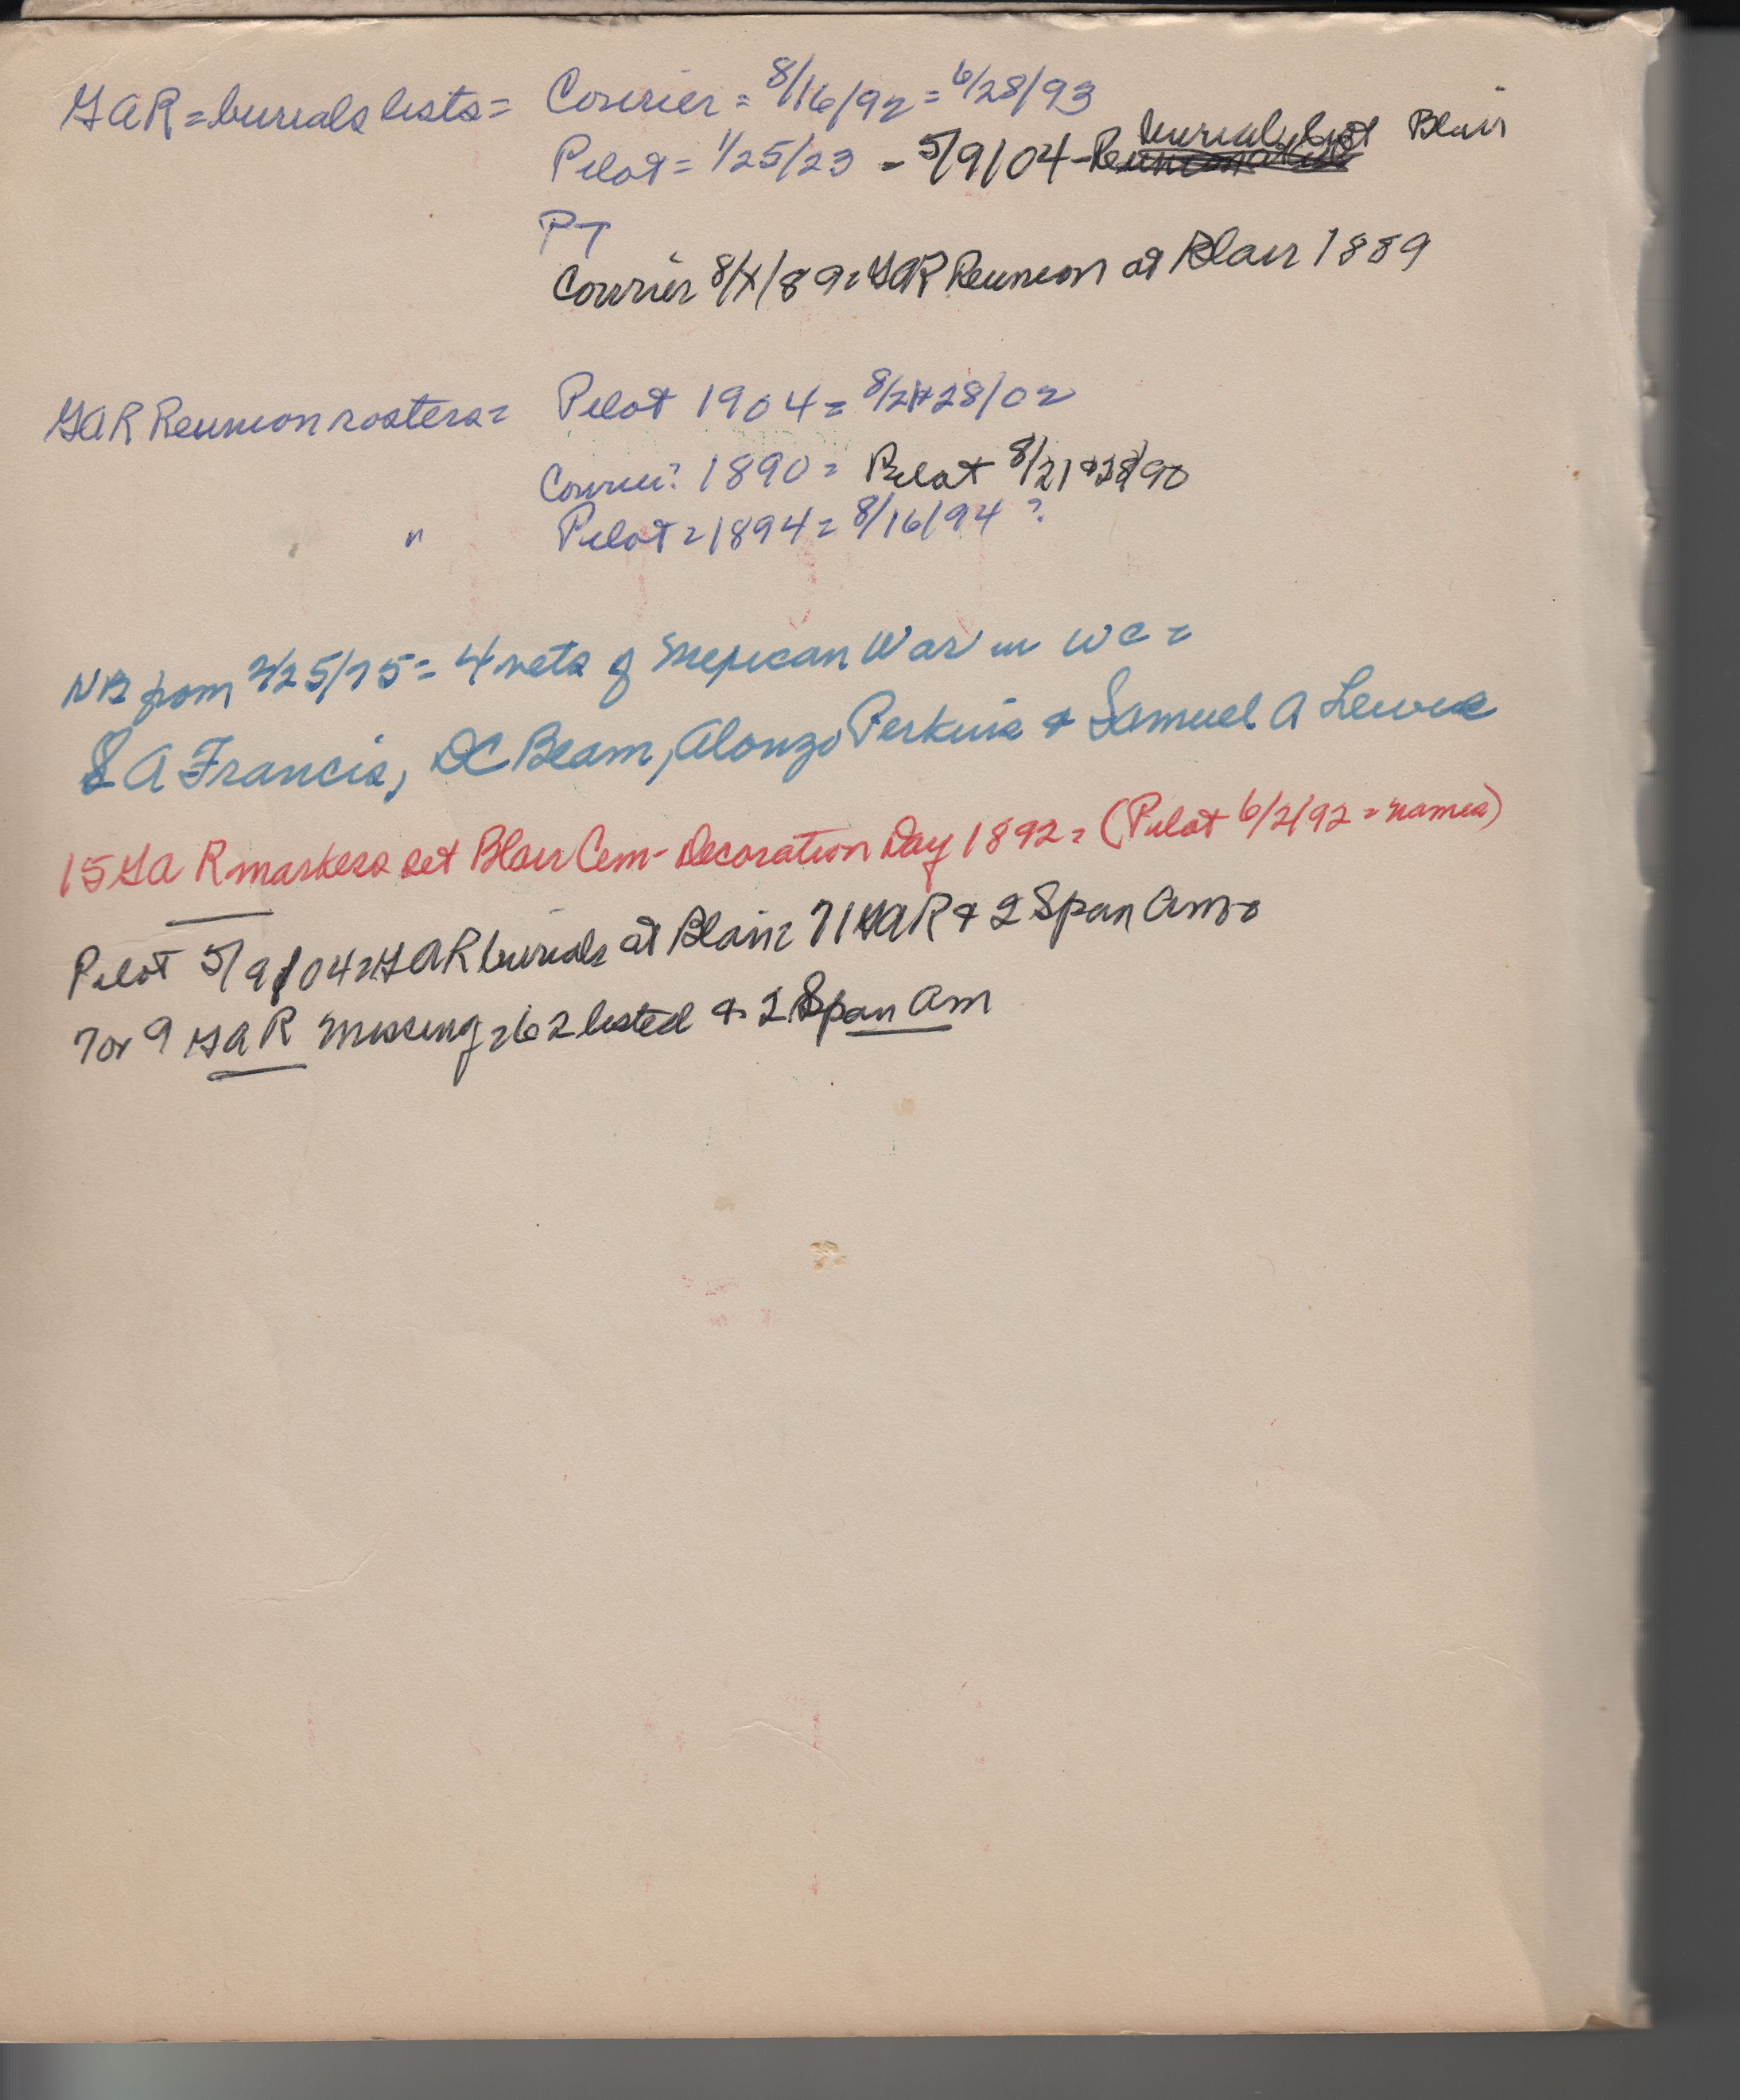 GAR = burials lists = Courier = 8/16/92 = 6/28/93
Pilot = 1/25/23 - 5/9/04 - burial list Blair
PT
Courier 8/1/89 = GAR Reunion at Blair 1889
GAR Reunion rosters = Pilot 1904 = 8/21+28/02
Courier? 1890 = Pilot 8/21+28/90
" Pilot = 1894 = 8/16/94 ?
from 2/25/75 = 4 vets of Mexican War in WC =
S A Francis, DC Beam, Alonzo Perkins + Samuel A Lewis
15 GAR markers set Blair Cem - Decoration Day 1892 = (Pilot 6/2/92 = names)
Pilot 5/9/04 = GAR burials at Blair = 71 GAR + 2 Span Am =
7 or 9 GAR missing = 62 listed + 2 Span Am